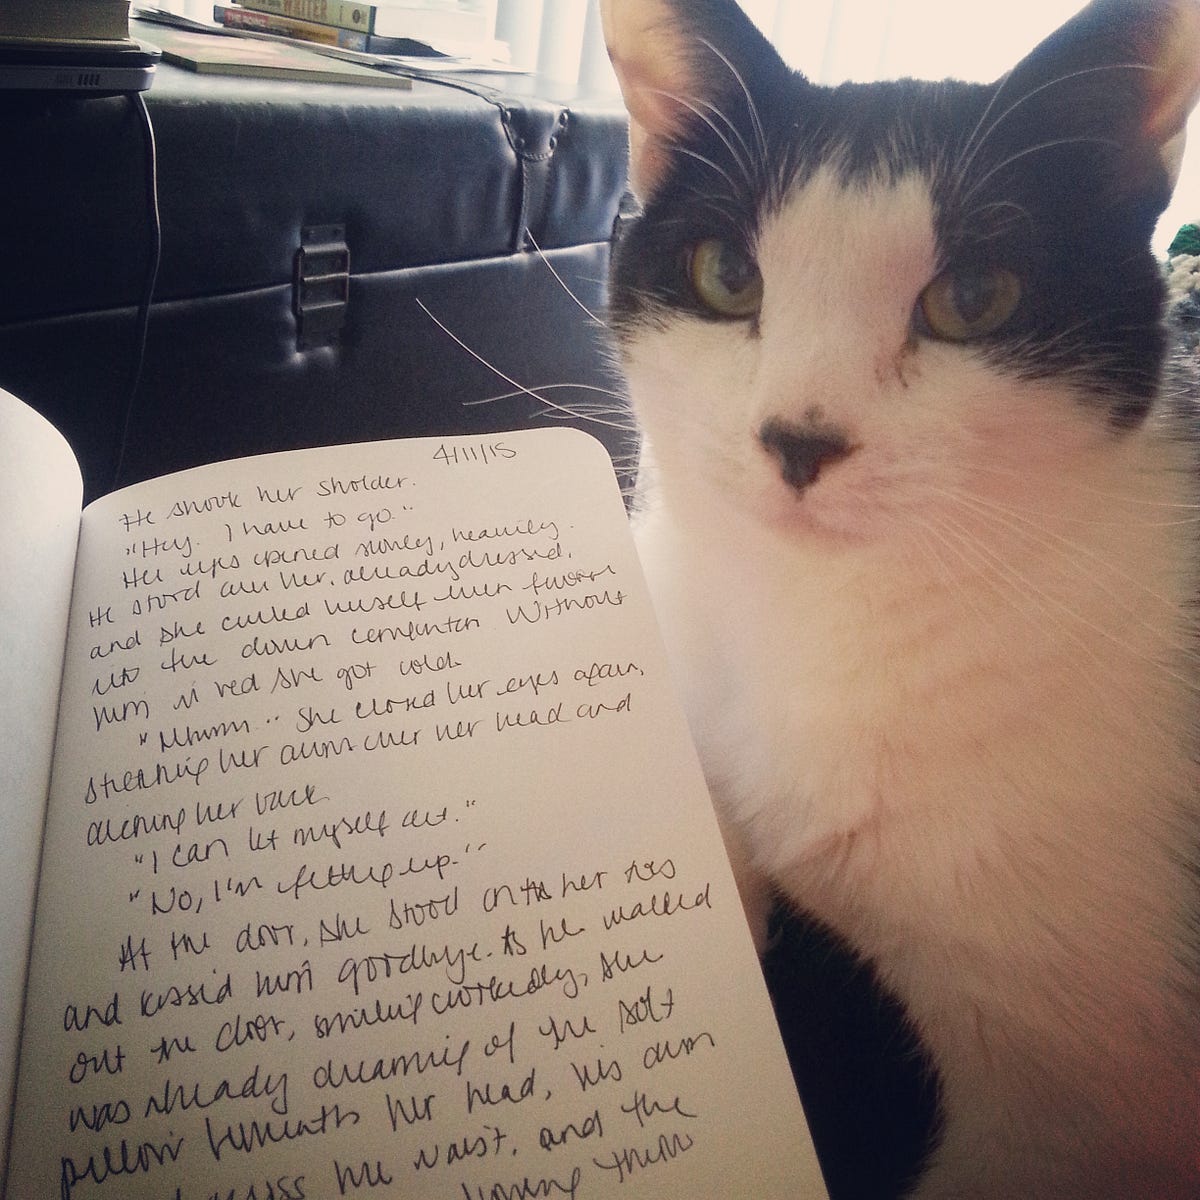 WRITER
4/11/15
He shook her sholder.
"Hey. I have to go."
Her eyes opened slowly, heavily.
He stood over her, already dressed,
and she curled herself even further
into the down comforter. Without
him in bed she got cold.
"Mhmm." She closed her eyes again,
stretching her arms over her head and
arching her back.
"I can let myself out."
"No, I'm getting up."
At the door, she stood on the her toes
and kissed him goodbye. As he walked
out the door, smiling crookedly, she
was already dreaming of the soft
pillow beneath her head, his arm
across her waist, and the
them